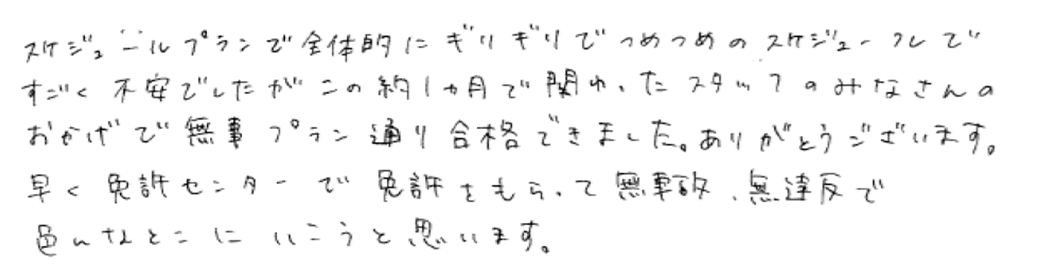 スケジュールプランで全体的にギリギリでつめつめのスケジュールで
すごく不安でしたがこの約1ヵ月で関わったスタッフのみなさんの
おかげで無事プラン通り合格できました。ありがとうございます。
早く免許センターで免許をもらって無事故、無違反で
色んなとこにいこうと思います。